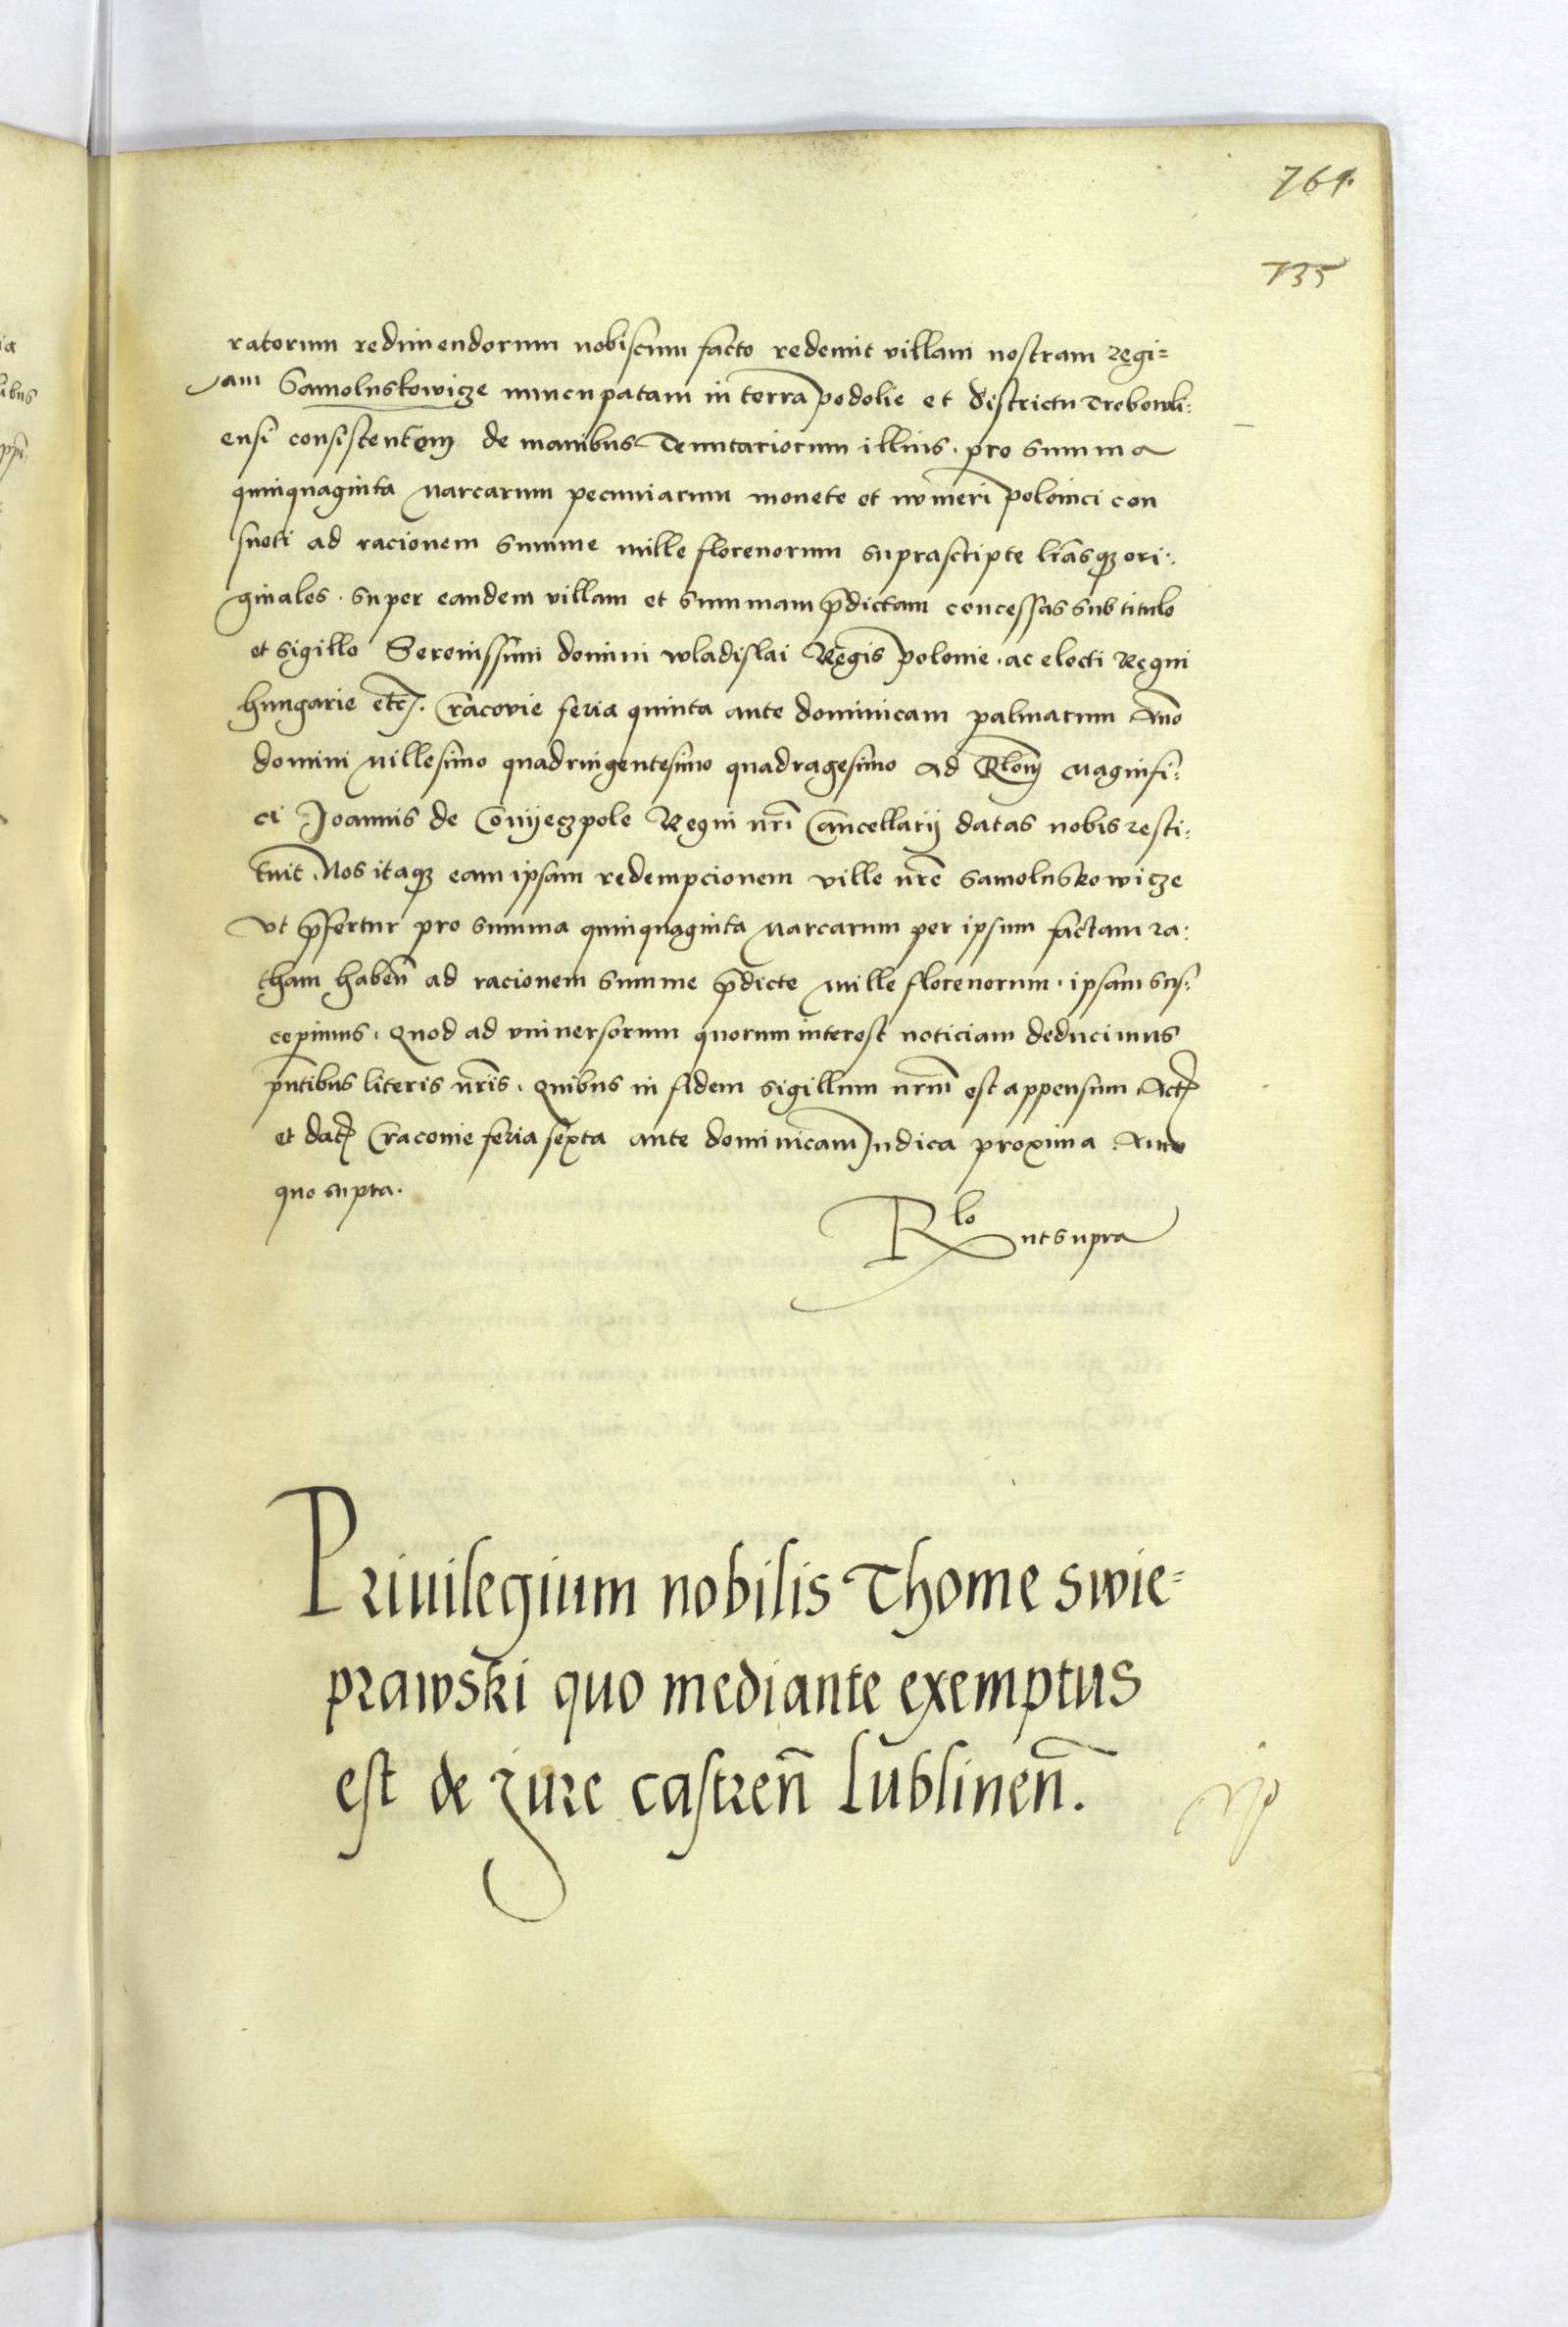 769.
735
ratorum redimendorum nobiscum facto redemit villam nostram regi=
am Samoluskowicze nuncupatam in terra podolie et districtu Trebowli:
ensi consistentem de manibus Tenutariorum illius. pro summa
quinquaginta Marcarum pecuniarum monete et numeri polonici con
sueti ad racionem summe mille florenorum suprascripte lr̃asqꝫ ori:
ginales. super eandem villam et summam p̃dictam concessas sub titulo
et sigillo Serenissimi domini wladislai Regis polonie. ac electi Regni
hungarie etc̃. Cracovie feria quinta ante dominicam palmarum Anno
domini Millesimo quadringentesimo quadragesimo Ad Rlonẽ Magnifi:
ci Joannis de Conijeczpole Regni nr̃i Cancellarij datas nobis resti:
tuit. Nos itaqꝫ eam ipsam redempcionem ville nr̃e Samoluskowicze
vt p̃fertur pro summa quinquaginta Marcarum per ipsum factam ra:
tham habeñ ad racionem summe p̃dicte Mille florenorum. ipsam sus:
cepimus. Quod ad vniuersorum quorum interest noticiam deducimus
pñtibus literis nr̃is. Quibus in fidem sigillum nrm̃ est appensum. Actꝭ
et datꝭ Cracouie feria sexta ante dominicam Judica proxima. Anno
quo supra.
Rlo ut supra
Priuilegium nobilis Thome Swie=
prawski quo mediante exemptus
est de iure castreñ Lublineñ.